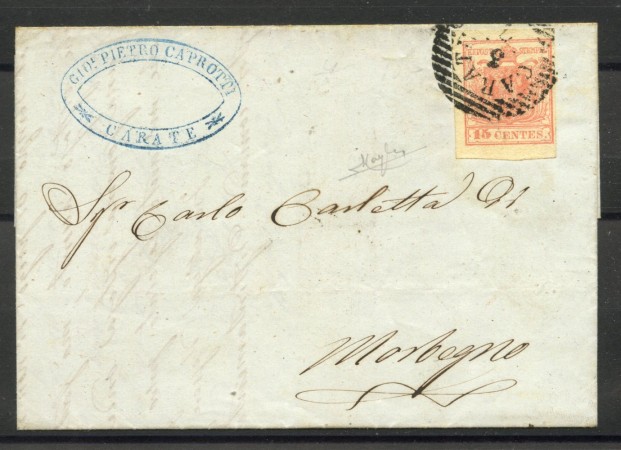 GIOⁿ PIETRO CAPROTTI
CARATE
CARATE
3
15 CENTES.
Sigr Carlo Carletta Di
Morbegno